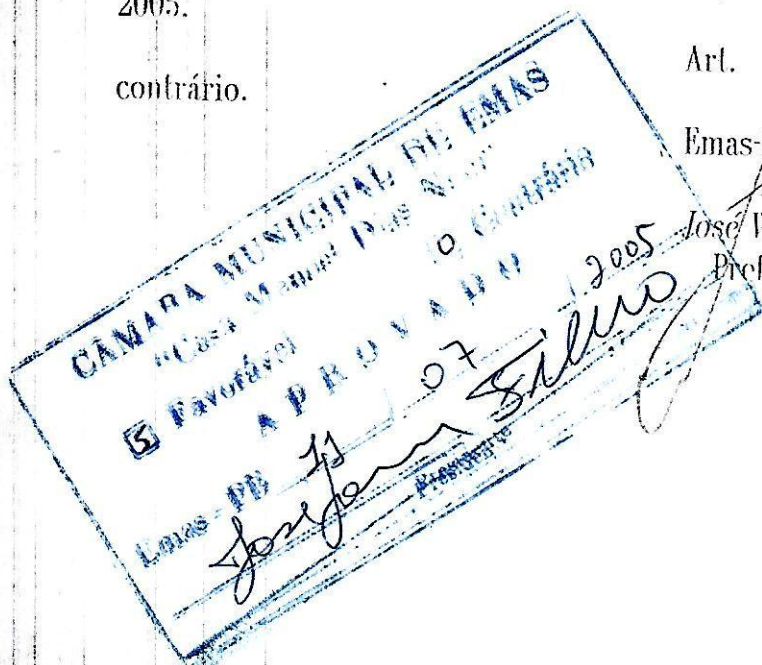 2005.
Art.
contrário.
Emas-
José
Pref
CÂMARA MUNICIPAL DE EMAS
"Casa Manuel Dias
5 Favorável 0 Contrário
APROVADO
Emas - PB 11 07 2005
Presidente